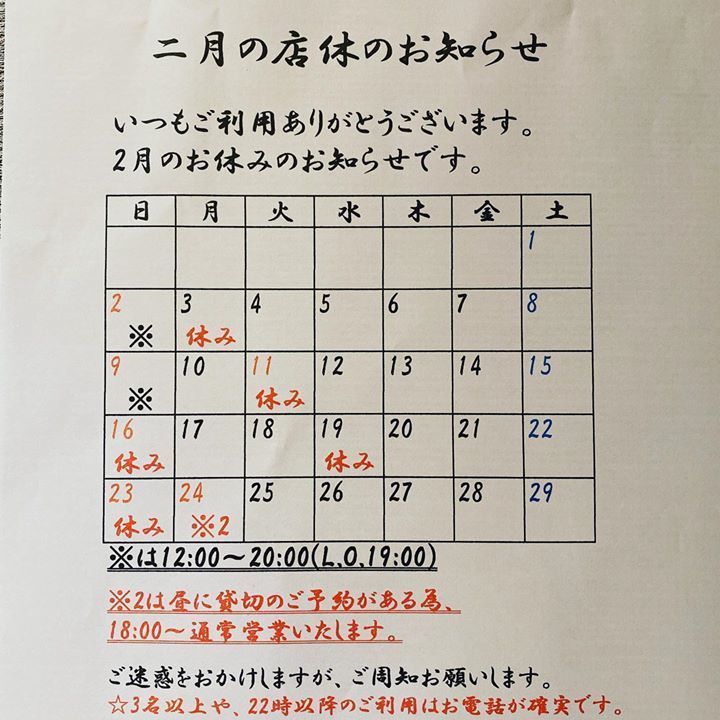 二月の店休のお知らせ
いつもご利用ありがとうございます。
2月のお休みのお知らせです。
日 月 火 水 木 金 土
1
2 3 4 5 6 7 8
※ 休み
9 10 11 12 13 14 15
※ 休み
16 17 18 19 20 21 22
休み 休み
23 24 25 26 27 28 29
休み ※2
※は12:00～20:00(L,O,19:00)
※2は昼に貸切のご予約がある為、
18:00～通常営業いたします。
ご迷惑をおかけしますが、ご周知お願いします。
☆3名以上や、22時以降のご利用はお電話が確実です。